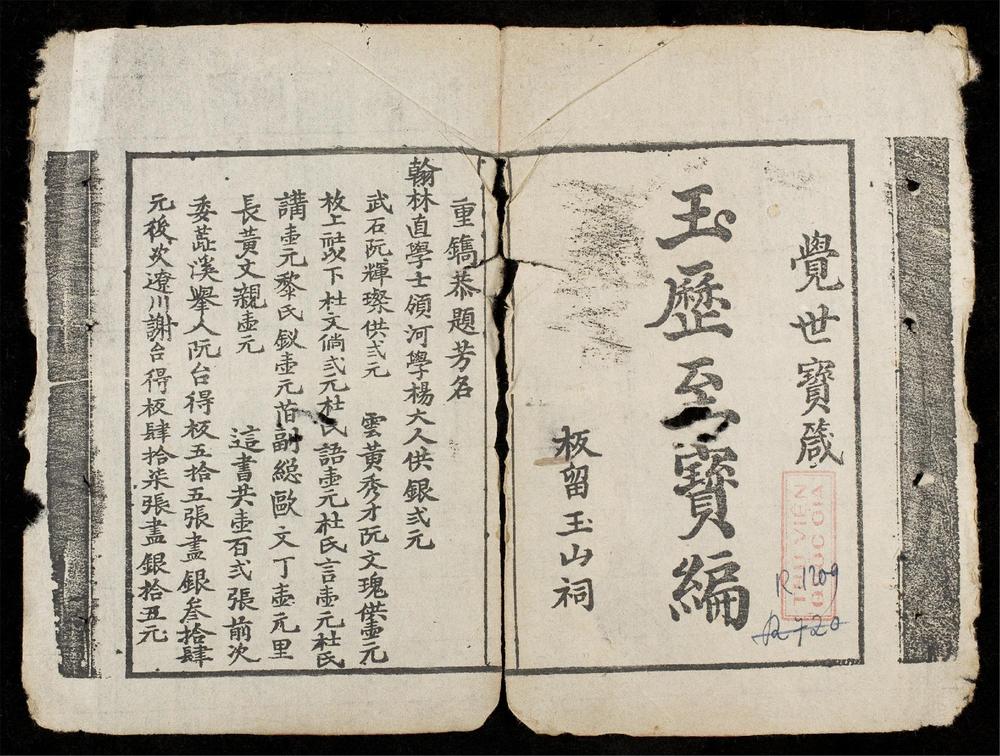 覺世寶箴
玉歷至寶編
板留玉山祠
THƯ VIỆN
QUỐC GIA
R.1209
R 720
重鐫恭題芳名
翰林直學士領河學楊大人供銀弍元
武石阮輝璨供弍元 雲黃秀才阮文瑰供壹元
板上社以下杜文倘弍元杜氏語壹元杜氏言壹元杜氏
講壹元黎氏釵壹元首副總歐文丁壹元里
長黃文親壹元 這書共壹石弍張前次
委茹溪舉人阮台得板五拾五張盡銀叁拾肆
元後次遼川謝台得板肆拾柒張盡銀拾五元